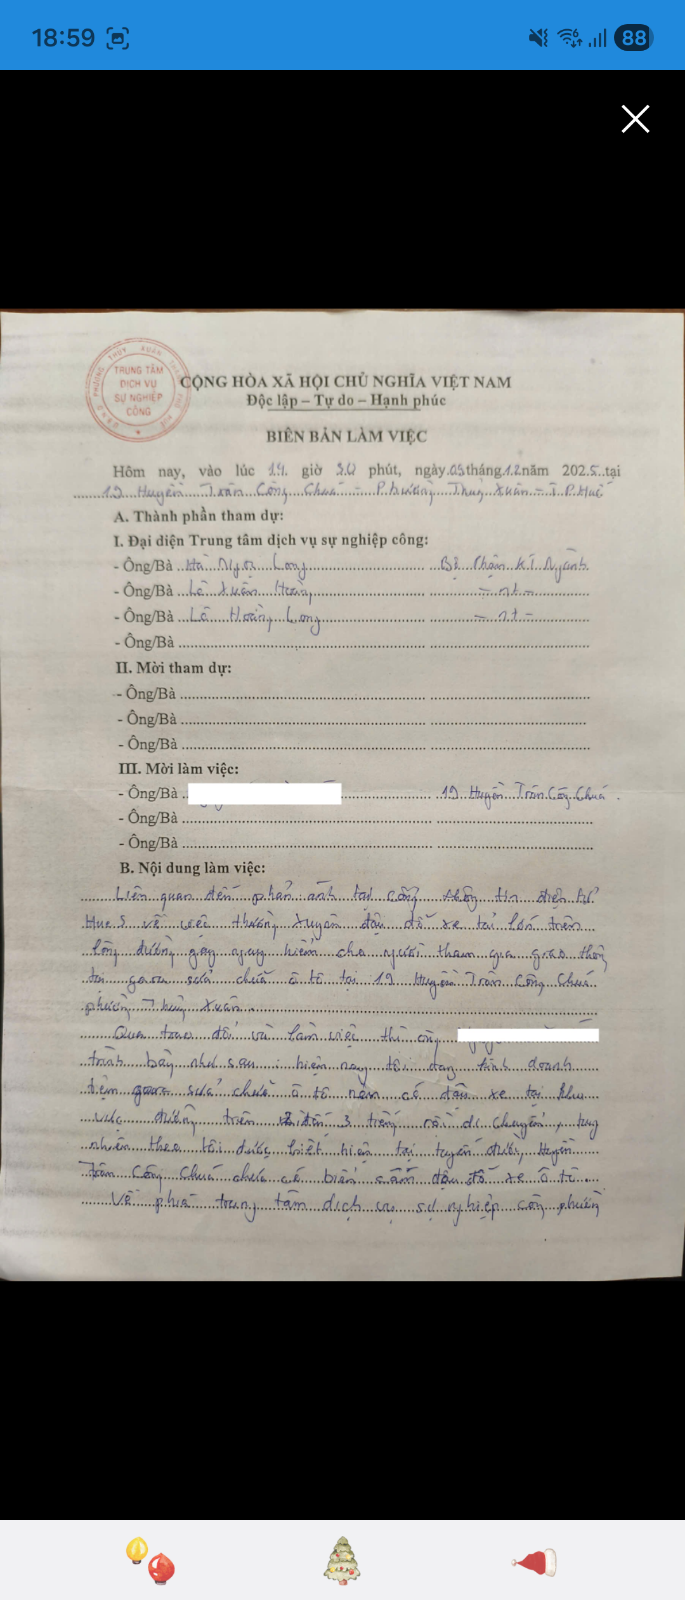 18:59
88
UBND PHƯỜNG THỦY XUÂN THÀNH PHỐ HUẾ
TRUNG TÂM
DỊCH VỤ
SỰ NGHIỆP
CÔNG
CỘNG HÒA XÃ HỘI CHỦ NGHĨA VIỆT NAM
Độc lập – Tự do – Hạnh phúc
BIÊN BẢN LÀM VIỆC
Hôm nay, vào lúc 14 giờ 30 phút, ngày 05 tháng 12 năm 2025 tại
19 Huyền Trân Công Chúa - Phường Thuỷ Xuân - T.P Huế
A. Thành phần tham dự:
I. Đại diện Trung tâm dịch vụ sự nghiệp công:
- Ông/Bà Hà Ngọc Long Bộ Phận KT Ngành
- Ông/Bà Lê Xuân Hoàng - nt -
- Ông/Bà Lê Hoàng Long - nt -
- Ông/Bà
II. Mời tham dự:
- Ông/Bà
- Ông/Bà
- Ông/Bà
III. Mời làm việc:
- Ông/Bà 19 Huyền Trân Công Chúa.
- Ông/Bà
- Ông/Bà
B. Nội dung làm việc:
Liên quan đến phản ánh tại cổng thông tin điện tử
Hue S về việc thường xuyên đậu đỗ xe tải lớn trên
lòng đường gây nguy hiểm cho người tham gia giao thông
tại gara sửa chữa ô tô tại 19 Huyền Trân Công Chúa
phường Thuỷ Xuân.
Qua trao đổi và làm việc thì ông
trình bày như sau: hiện nay tôi đang kinh doanh
tiệm sửa chữa ô tô nên có đậu xe tại khu
vực đường trên 2 đến 3 tiếng rồi di chuyển, tuy
nhiên theo tôi được biết hiện tại tuyến đường Huyền
Trân Công Chúa chưa có biển cấm đậu đỗ xe ô tô.
Về phía trung tâm dịch vụ sự nghiệp công phường